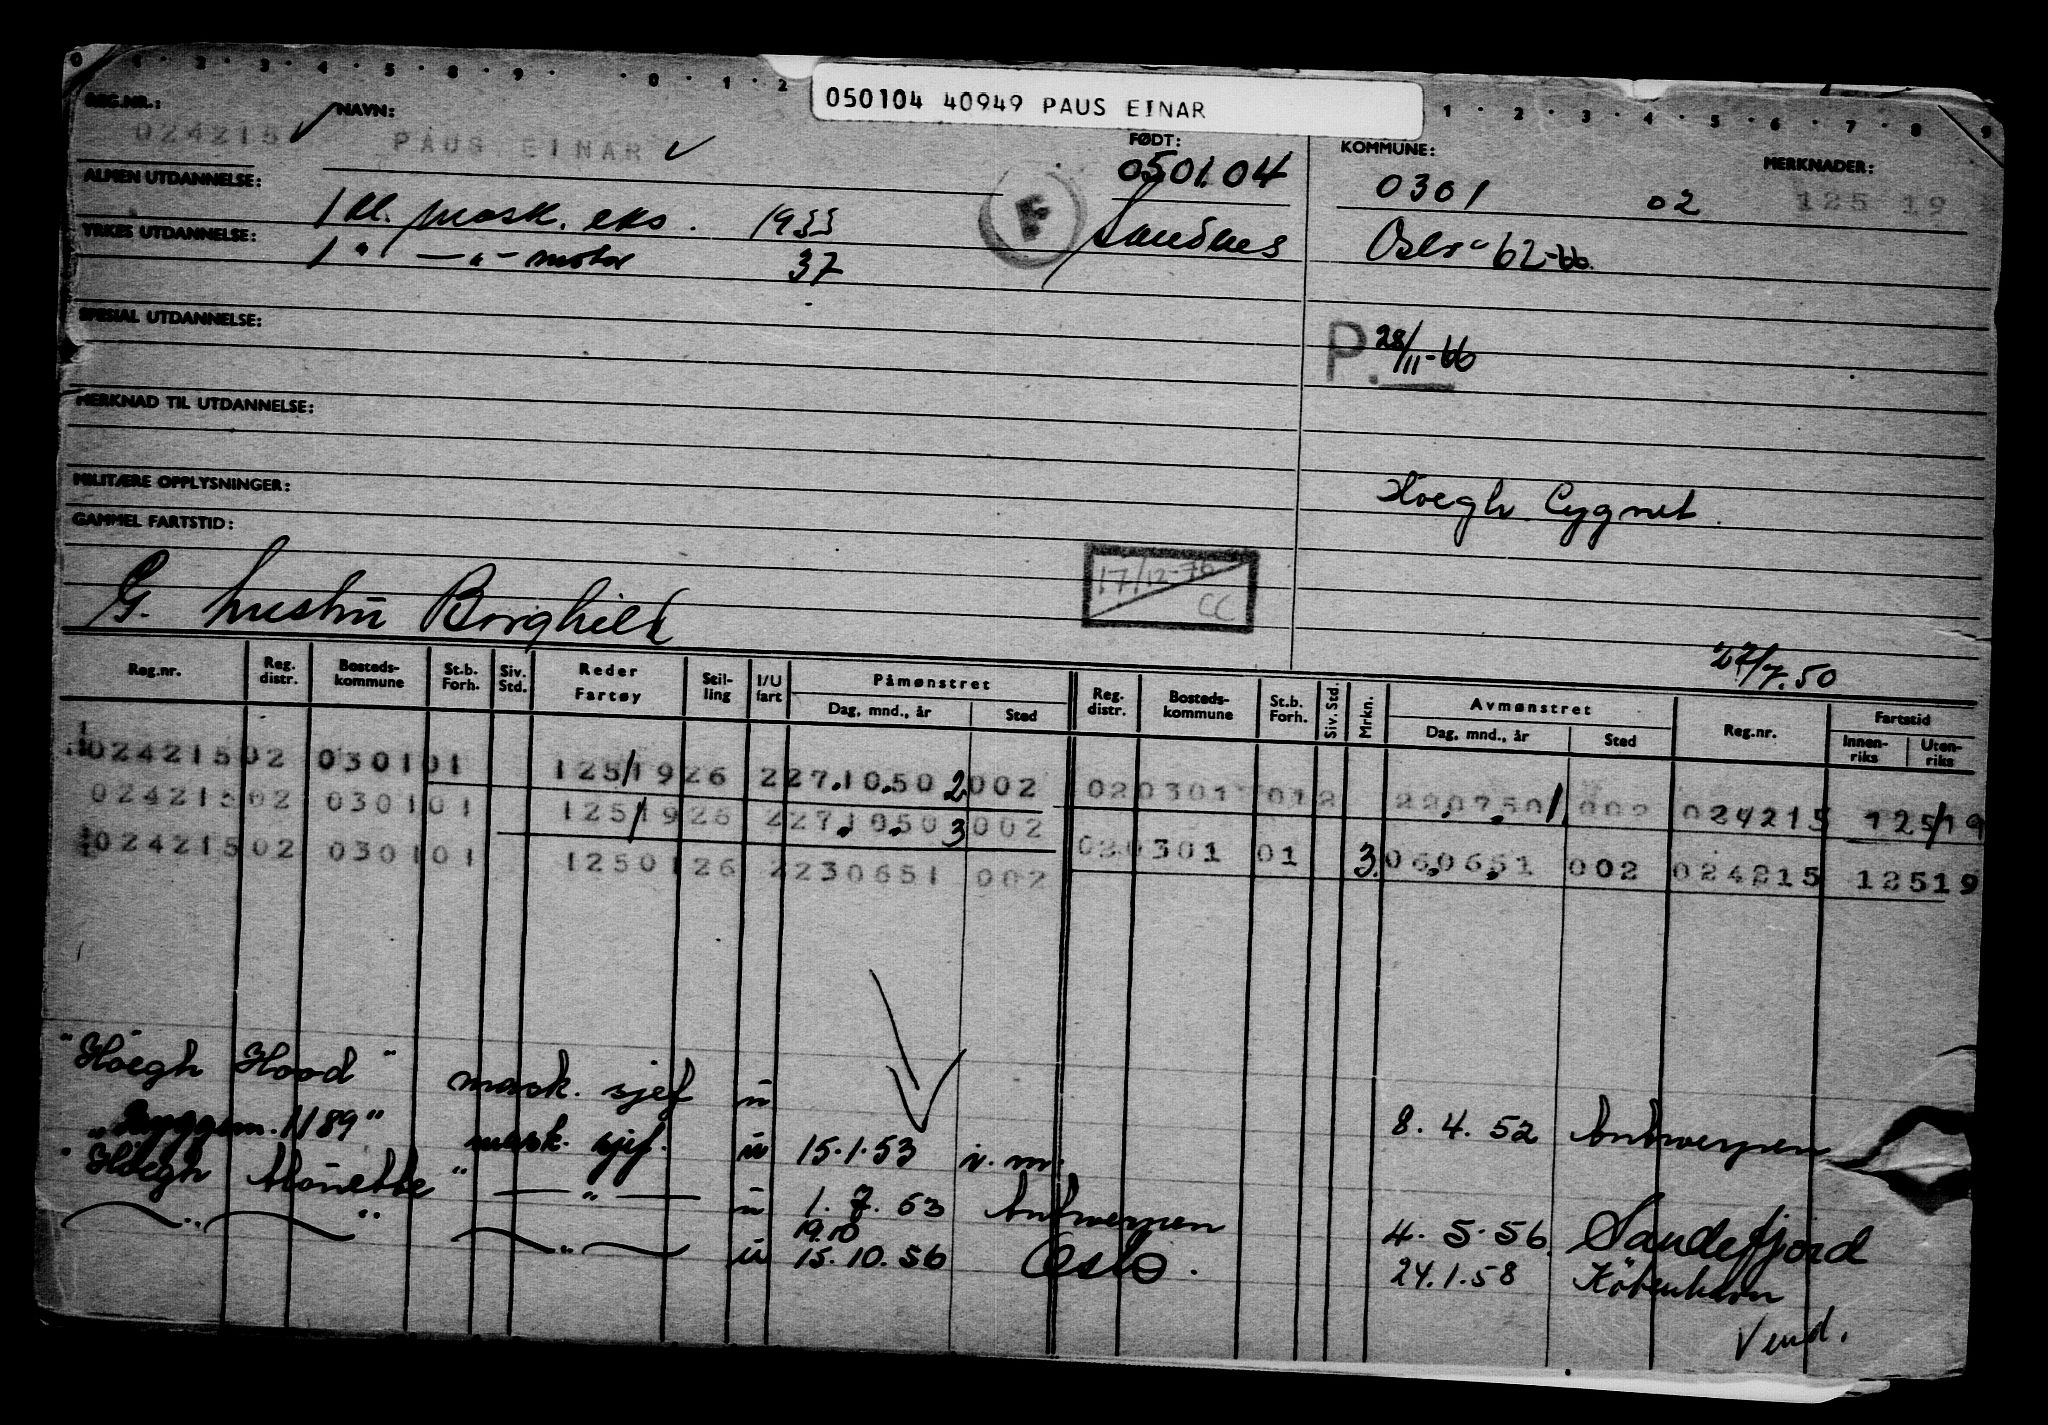 050104 40949 PAUS EINAR
REG.NR.: 024215 NAVN: PAUS EINAR FØDT: 050104 KOMMUNE: 0301 02 MERKNADER: 125 19
ALMEN UTDANNELSE: 1 kl. mask. eks. 1933 F Sandnes Oslo "62-66.
YRKES UTDANNELSE: 1 " — " — motor 37
SPESIAL UTDANNELSE:
P. 28/11-66
MERKNAD TIL UTDANNELSE:
MILITÆRE OPPLYSNINGER:
Høegh Cygnet.
GAMMEL FARTSTID:
17/12-76 CC
G. hustru Borghild
27/7.50
Reg.nr. Reg. distr. Bosteds-kommune St.b. Forh. Siv. Std. Reder Fartøy Stil-ling I/U fart Påmønstret Dag, mnd., år Sted Reg. distr. Bosteds-kommune St.b. Forh. Siv. Std. Mrkn. Avmønstret Dag, mnd., år Sted Reg.nr. Fartstid Innen-riks Uten-riks
024215 02 0301 01 125/19 26 2 27.10.50 2 002 02 0301 01 2 22.07.50 1 002 024215 125/19
024215 02 0301 01 125/19 26 2 27.10.50 3 002
024215 02 0301 01 12501 26 2 230651 002 02 0301 01 3. 06.06.51 002 024215 12519
"Høegh Hood" mask. sjef u 8. 4. 52 Antwerpen
"Byggem. 1189" mask. sjef. u 15.1.53 v. m.
"Høegh " — " — u 1. 7. 53 Antwerpen 4. 5. 56. Sandefjord
19.10
— " — " — " — u 15.10.56 Oslo. 24.1.58 København
Vend.